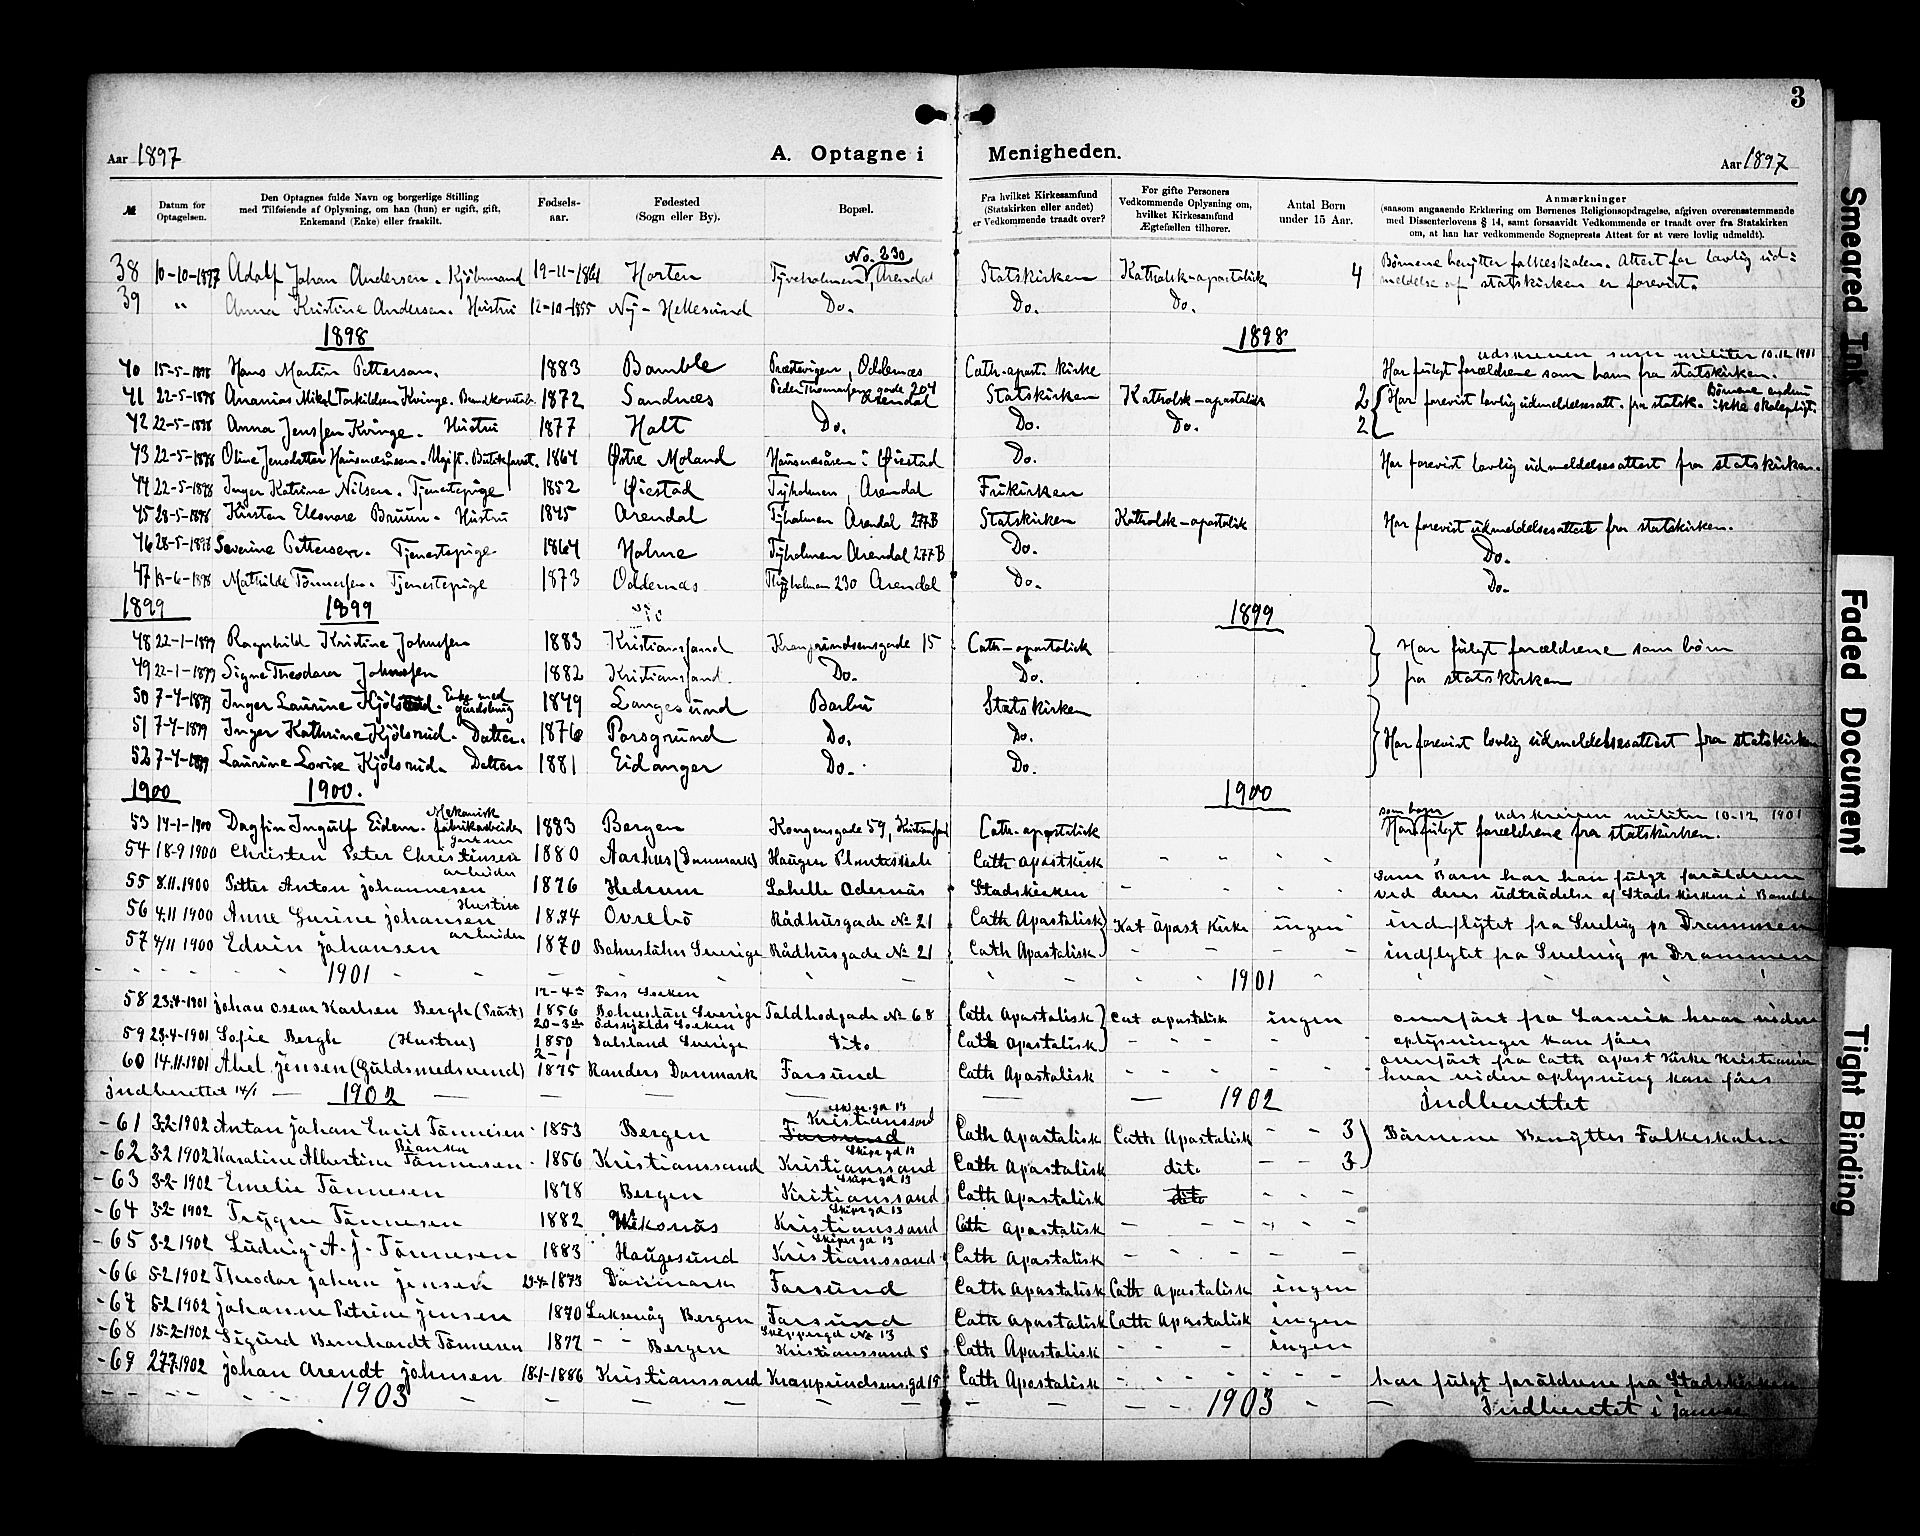 3
Aar 1897 A. Optagne i Menigheden. Aar 1897
№ Datum for Optagelsen. Den Optagnes fulde Navn og borgerlige Stilling med Tilføiende af Oplysning, om han (hun) er ugift, gift, Enkemand (Enke) eller fraskilt. Fødsels-aar. Fødested (Sogn eller By). Bopæl. Fra hvilket Kirkesamfund (Statskirken eller andet) er Vedkommende traadt over? For gifte Personers Vedkommende Oplysning om, hvilket Kirkesamfund Ægtefællen tilhører. Antal Børn under 15 Aar. Anmærkninger (saasom angaaende Erklæring om Børnenes Religionsopdragelse, afgiven overensstemmende med Dissenterlovens § 14, samt forsaavidt Vedkommende er traadt over fra Statskirken om, at han har vedkommende Sogneprests Attest for at være lovlig udmeldt).
38 10-10-1897 Adolf Johan Andersen. Kjöbmand 19-11-1861 Horten No. 230 Tyveholmen, Arendal Statskirken Katholsk-apostolisk 4 Börnene benytter folkeskolen. Attest for lovlig ud-
meldelse af statskirken er forevist.
39 " Anna Kristine Andersen. Hustru 12-10-1855 Ny-Hellesund Do. Do. Do.
1898 1898
40 15-5-1898 Hans Martin Pettersen. 1883 Bamble Præstevigen, Oddernæs Cath-apost. kirke udskreven som militær 10.12 1901
Har fulgt forældrene som barn fra statskirken.
41 22-5-1898 Ananias Mikal Torkildsen Kvinge. 1872 Sandnæs Peder Thomassens gade 204 Arendal Statskirken Katholsk-apostolisk 2 Har forevist lovlig udmeldelsesatt. fra statsk. Børnene endnu ikke skolepligt.
42 22-5-1898 Anna Jenssen Kvinge. Hustru 1877 Holt Do. Do. Do. 2
43 22-5-1898 Oline Jensdatter Ugift. 1864 Østre Moland i Øiestad Do. Har forevist lovlig udmeldelsesattest fra statskirken.
44 22-5-1898 Inger Katrine Nilsen. Tjenestepige 1852 Øiestad Tyholmen, Arendal Frikirken
45 28-5-1898 Kirsten Elleonore Bruun. Hustru 1845 Arendal Tyholmen Arendal 277B Statskirken Katholsk-apostolisk Har forevist udmeldelsesattest fra statskirken.
46 28-5-1898 Severine Pettersen. Tjenestepige 1864 Holme Tyholmen Arendal 277B Do. Do.
47 -6-1898 Mathilde Tönnessen. Tjenestepige 1873 Oddernæs Tyholmen 230 Arendal Do. Do.
1899 1899 1899
48 22-1-1899 Ragnhild Kristine Johnssen 1883 Kristianssand Kronprindsensgade 15 Cath-apostolisk Har fulgt forældrene som börn
49 22-1-1899 Signe Theodora Johnssen 1882 Kristianssand. Do. Do. fra statskirken
50 7-4-1899 Inger Laurine Kjölsrud. Enke med gårdsbrug 1849 Langesund Barbu Statskirken
51 7-4-1899 Inger Kathrine Kjölsrud. Datter. 1876 Porsgrund Do. Do. Har forevist lovlig udmeldelsesattest fra statskirken
52 7-4-1899 Laurine Lovise Kjölsrud. Datter 1881 Eidanger Do. Do.
1900 1900. 1900
53 14-1-1900 Dagfin Ingulf Eidem. Mekanisk fabrikarbeider 1883 Bergen Kongensgade 59, Cath-apostolisk som barn udskreven militær 10-12 1901
Har fulgt forældrene fra statskirken.
54 18-9 1900 Christen Peter Christinsen 1880 Aarhus (Danmark) Haugen Planteskole Cath apostkirk
55 8.11.1900 Petter Anton johannesen arbeider 1876 Hedrum Lahelle Odernäs Stadskirken Som Barn har han fulgt foräldrene
ved deres udträdelse af Stadskirken i Bamble
56 4.11 1900 Anne Gurine johansen Hustru 1874 Övrebö Rådhusgade № 21 Cath Apostalisk Kat Apost Kirke ingen indflytet fra Svelvig pr Drammen
57 4/11 1900 Edvin johansen arbeider 1870 Bohuslähn Sverige Rådhusgade № 21 Cath Apostalisk indflytet fra Svelvig pr Drammen
1901 1901
58 23.4-1901 johan oscar Karlsen Bergh (Präst) 12-4 1856 Foss Socken Bohuslän Sverige Toldbodgade № 68 Cath Apostalisk Cat apostalisk ingen omfört fra Larvik hvor videre
59 23.4-1901 Sofie Bergh (Hustru) 20-3 1850 Ödskjölds Socken Dalsland Sverige Dito Cath Apostalisk oplysninger kan fåes
60 14.11.1901 Abel jensen (Guldsmedsvend) 2-1 1875 Randers Danmark Farsund Cath Apostalisk omfört fra Cath apost Kirke Kristiania
hvor viden oplysning kan fåes
Indberettet 14/1 1902 1902 Indberettet
61 3-2-1902 Anton johan Emil Tönnesen 1853 Bergen Skipr.gd 13 Kristianssand Farsund Cath Apostalisk Cath Apostalisk 3 Börnene Benyttes Folkeskolen
62 3-2 1902 Karoline Albertine Bianka Tönnesen 1856 Kristianssand Skipr gd 13 Kristianssand Cath Apostalisk dito 3
63 3-2-1902 Emelie Tönnesen 1878 Bergen Skipr gd 13 Kristianssand Cath Apostalisk dito
64 3-2-1902 Trygve Tönnesen 1882 Skipr gd 13 Kristianssand Cath Apostalisk
65 3-2 1902 Ludvig A. J. Tönnesen 1883 Haugesund Skipr gd 13 Kristianssand Cath Apostalisk
66 5-2 1902 Theodor johan jensen 1873 Danmark Farsund Cath Apostalisk Cath Apostalisk ingen
67 5-2 1902 johanne Petrine jensen 1870 Laksevåg Bergen Farsund Cath Apostalisk Cath Apostalisk ingen
68 15-2-1902 Sigurd Bernhardt Tönnesen 1877 Bergen Skippergd № 13 Kristianssand S Cath Apostalisk ingen
69 27.7.1902 johan Arendt johnsen 18-1-1886 Kristianssand Kronprindsens.gd 19 Cath Apostalisk har fulgt foräldrene fra Stadskirken
1903 1903 Indberetet i januar
Smeared Ink
Faded Document
Tight Binding